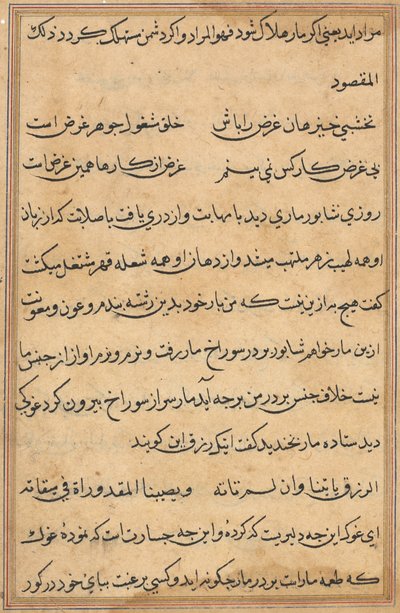 مراد اید یعنی اکر مار هلاک شود فهو المراد و اکر دشمن مستهلک کردد ذلک
المقصود
نخشبی خیز هان غرض را باش خلق مشغول جوهر غرض است
بی غرض کار کس نمی بینم غرض از کارها همین غرض است
روزی شابور ماری دید با مهابت و اژدری یافت با صلابت که از زبان
او همه لهیب زهر ملتهب میشد و از دهان او همه شعله قهر مشتعل میکشت
کفت هیچ به ازین نیست که من بار خود بدین رشته بندم و عون و معونت
ازین مار خواهم شابور بر در سوراخ مار رفت و نرم نرم اواز از جنس ما
نیست خلاف جنس بر در من بر چه آید مار سر از سوراخ بیرون کرد غوکی
دید ستاده مار بخندید کفت اینک رزق این کویند
الرزق یاتینا وان لم تاته ویصیبنا المقدور فی میقاته
ای غوک این چه دلیریست که کردهٔ و این چه جسارت است که نمودهٔ غوک
که طعمه مار است بر در مار چکونه اید و کسی برغبت بپای خود در کور